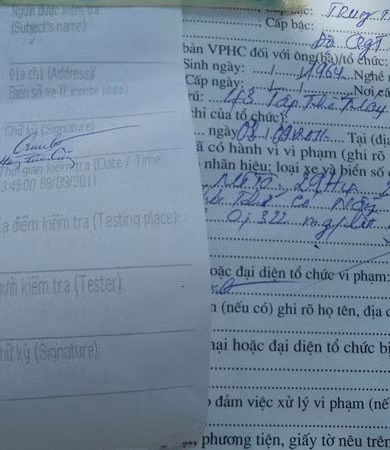 Người được kiểm tra
(Subject's name)
Địa chỉ (Address)
Biển số xe (License plate)
Chữ ký (Signature)
Thời gian kiểm tra (Date / Time
3:45:00 08/09/2011
a điểm kiểm tra (Testing place)
ười kiểm tra (Tester)
hữ ký (Signature)
; Cấp bậc:
Đội CSGT
bản VPHC đối với ông(bà)/tổ chức:
Sinh ngày: ..../..../1964 Nghề
Cấp ngày: ..../..../.... Nơi cấ
rú: 43
chỉ của tổ chức):
ngày 08/09/2011. Tại (địa
ã có hành vi vi phạm (ghi rõ
nhãn hiệu; loại xe và biển số
Mô tô 29H4
có nồng
0,322 mg/lít
oặc đại diện tổ chức vi phạm:
n (nếu có) ghi rõ họ tên, địa c
hại hoặc đại diện tổ chức bị
o đảm việc xử lý vi phạm (nế
phương tiện, giấy tờ nêu trên